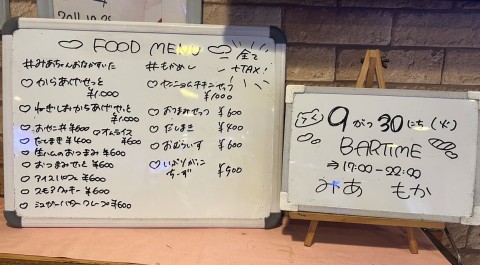 2011.10.25
FOOD MENU
全て
+TAX!
#みあちゃんおなかすいた
からあげせっと
¥1,000
ねぎしおからあげせっと
¥1,000
おやこ丼 ¥600
オムライス
¥600
だしまき ¥400
生ハムのおつまみ ¥600
おつまみせっと ¥600
アイスパフェ ¥600
スモアクッキー ¥600
シュガーバタークレープ ¥600
#もかめし
ヤンニョムチキンせっと
¥1000
おつまみせっつ ¥600
だしまき ¥400
おむらいす ¥600
いぶりがっこ
ちーず ¥500
9がつ30にち(火)
BARTIME
⇒17:00-22:00
みあ もか